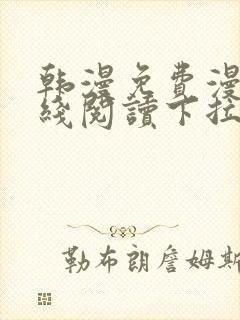 韩漫免費漫
綫閱讀下拉
勒布朗詹姆斯